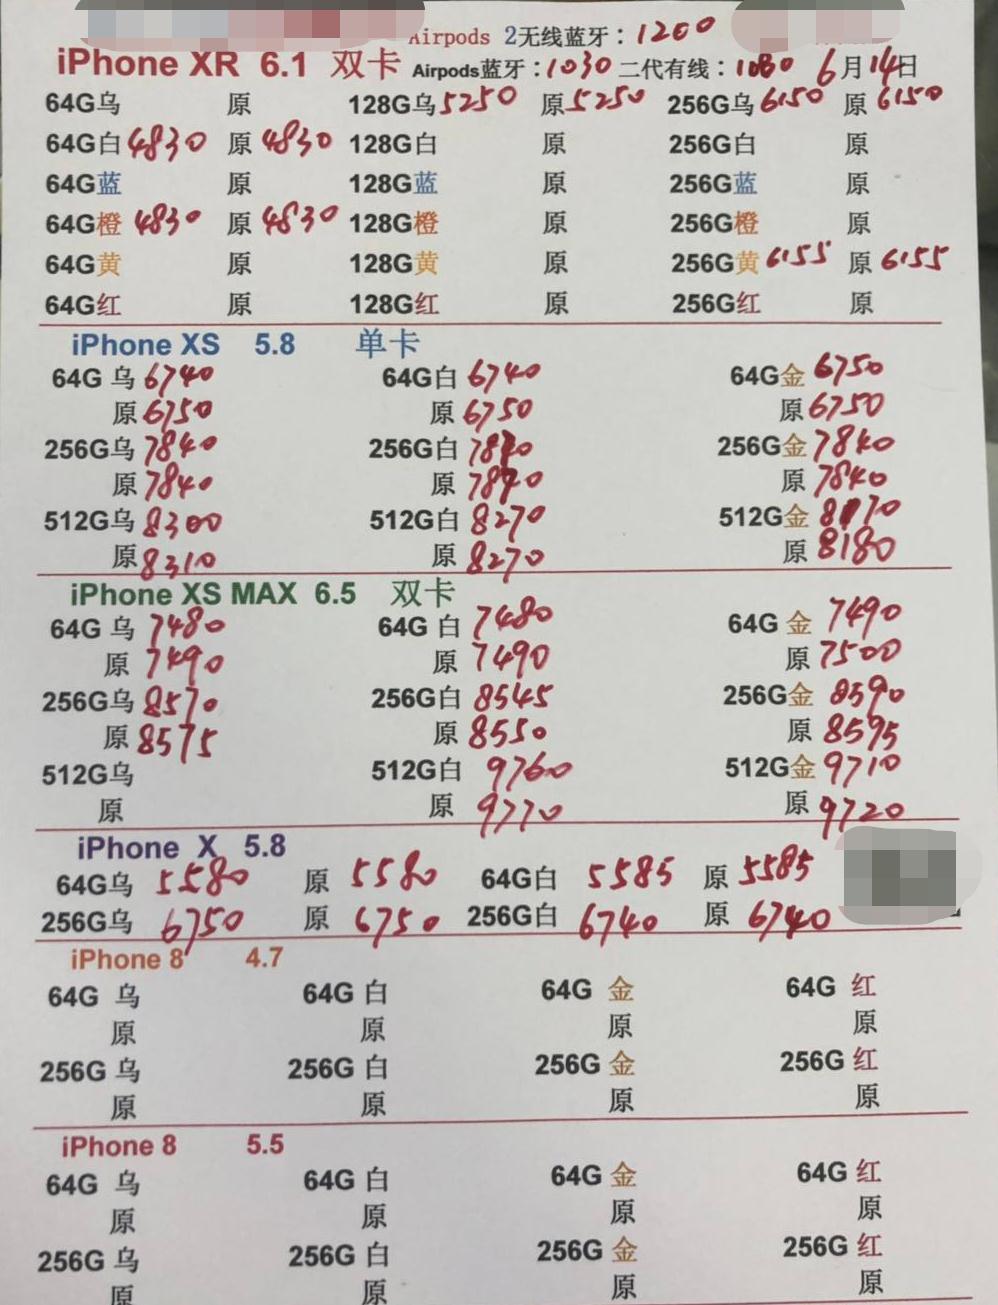 Airpods 2无线蓝牙：1200
iPhone XR 6.1 双卡 Airpods蓝牙：1030 二代有线：1080 6月14日
64G乌 原 128G乌5250 原5250 256G乌6150 原6150
64G白4830 原4830 128G白 原 256G白 原
64G蓝 原 128G蓝 原 256G蓝 原
64G橙4830 原4830 128G橙 原 256G橙 原
64G黄 原 128G黄 原 256G黄6155 原6155
64G红 原 128G红 原 256G红 原
iPhone XS 5.8 单卡
64G 乌6740 64G白6740 64G金6750
原6750 原6750 原6750
256G乌7840 256G白 256G金7840
原7840 原 原7840
512G乌8300 512G白8270 512G金8170
原8310 原8270 原8180
iPhone XS MAX 6.5 双卡
64G 乌7480 64G 白7480 64G 金7490
原7490 原7490 原7500
256G乌8570 256G白8545 256G金8590
原8575 原8550 原8595
512G乌 512G白9760 512G金9710
原 原9770 原9720
iPhone X 5.8
64G乌5580 原5580 64G白5585 原5585
256G乌6750 原6750 256G白6740 原6740
iPhone 8 4.7
64G 乌 64G 白 64G 金 64G 红
原 原 原 原
256G 乌 256G 白 256G 金 256G 红
原 原 原 原
iPhone 8 5.5
64G 乌 64G 白 64G 金 64G 红
原 原 原 原
256G 乌 256G 白 256G 金 256G 红
原 原 原 原